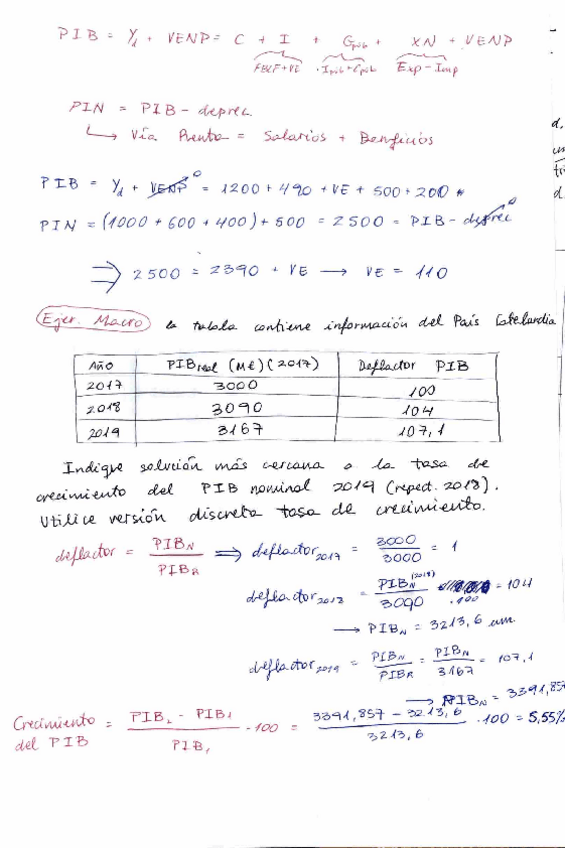 PIB = Yd + VENP = C + I + Gpúb + XN + VENP
FBCF+VE Ipúb+Cpúb Exp-Imp
PIN = PIB - deprec.
Vía Renta = Salarios + Beneficios
PIB = Yd + VENP = 1200 + 490 + VE + 500 + 200
PIN = (1000 + 600 + 400) + 500 = 2500 = PIB - deprec
⇒ 2500 = 2390 + VE → VE = 110
Ejer. Macro la tabla contiene información del País
Año PIBreal (M€) (2017) Deflactor PIB
2017 3000 100
2018 3090 104
2019 3167 107,1
Indique solución más cercana a la tasa de
crecimiento del PIB nominal 2019 (repect. 2018).
Utilice versión discreta tasa de crecimiento.
deflactor = PIBN / PIBR ⇒ deflactor2017 = 3000 / 3000 = 1
deflactor2018 = PIBN(2018) / 3090 · 100 = 104
→ PIBN = 3213,6 um.
deflactor2019 = PIBN / PIBR = PIBN / 3167 = 107,1
→ PIBN = 3391,857
Crecimiento del PIB = PIB2 - PIB1 / PIB1 · 100 = 3391,857 - 3213,6 / 3213,6 · 100 = 5,55%